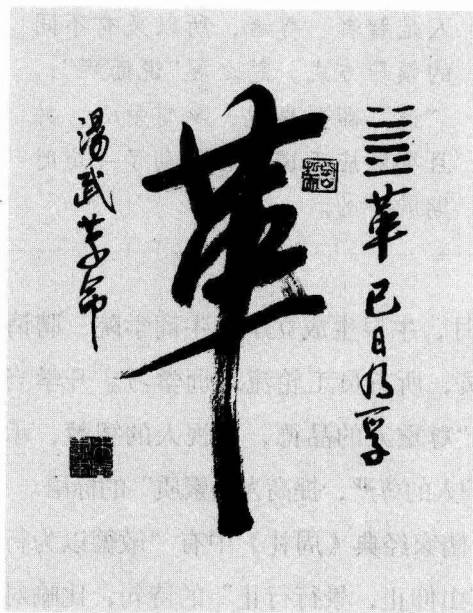 ䷰革 已日乃孚
革
湯武革命